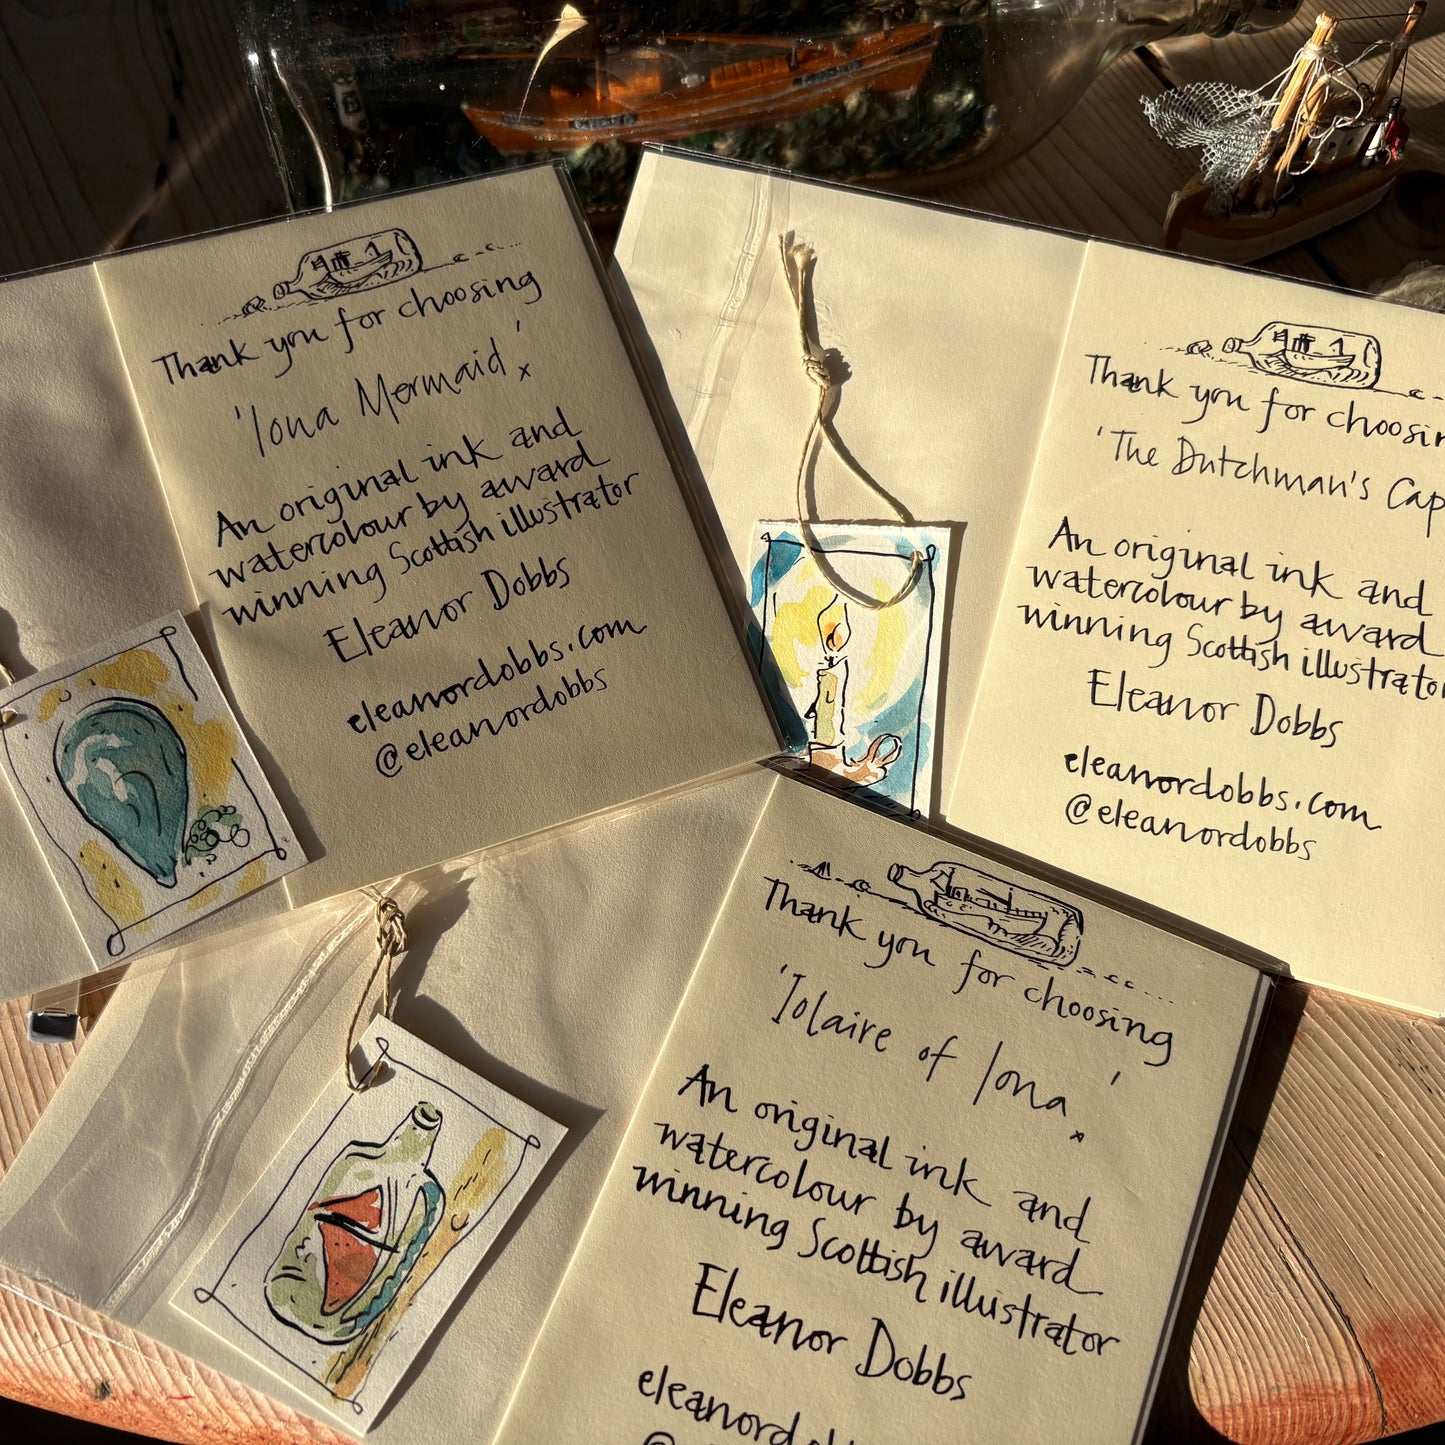 Thank you for choosing
'Iona Mermaid' x
An original ink and
watercolour by award
winning Scottish illustrator
Eleanor Dobbs
eleanordobbs.com
@eleanordobbs
Thank you for choosin
'The Dutchman's Cap
An original ink and
watercolour by award
winning Scottish illustrator
Eleanor Dobbs
eleanordobbs.com
@eleanordobbs
Thank you for choosing
'Iolaire of Iona' x
An original ink and
watercolour by award
winning Scottish illustrator
Eleanor Dobbs
eleanord